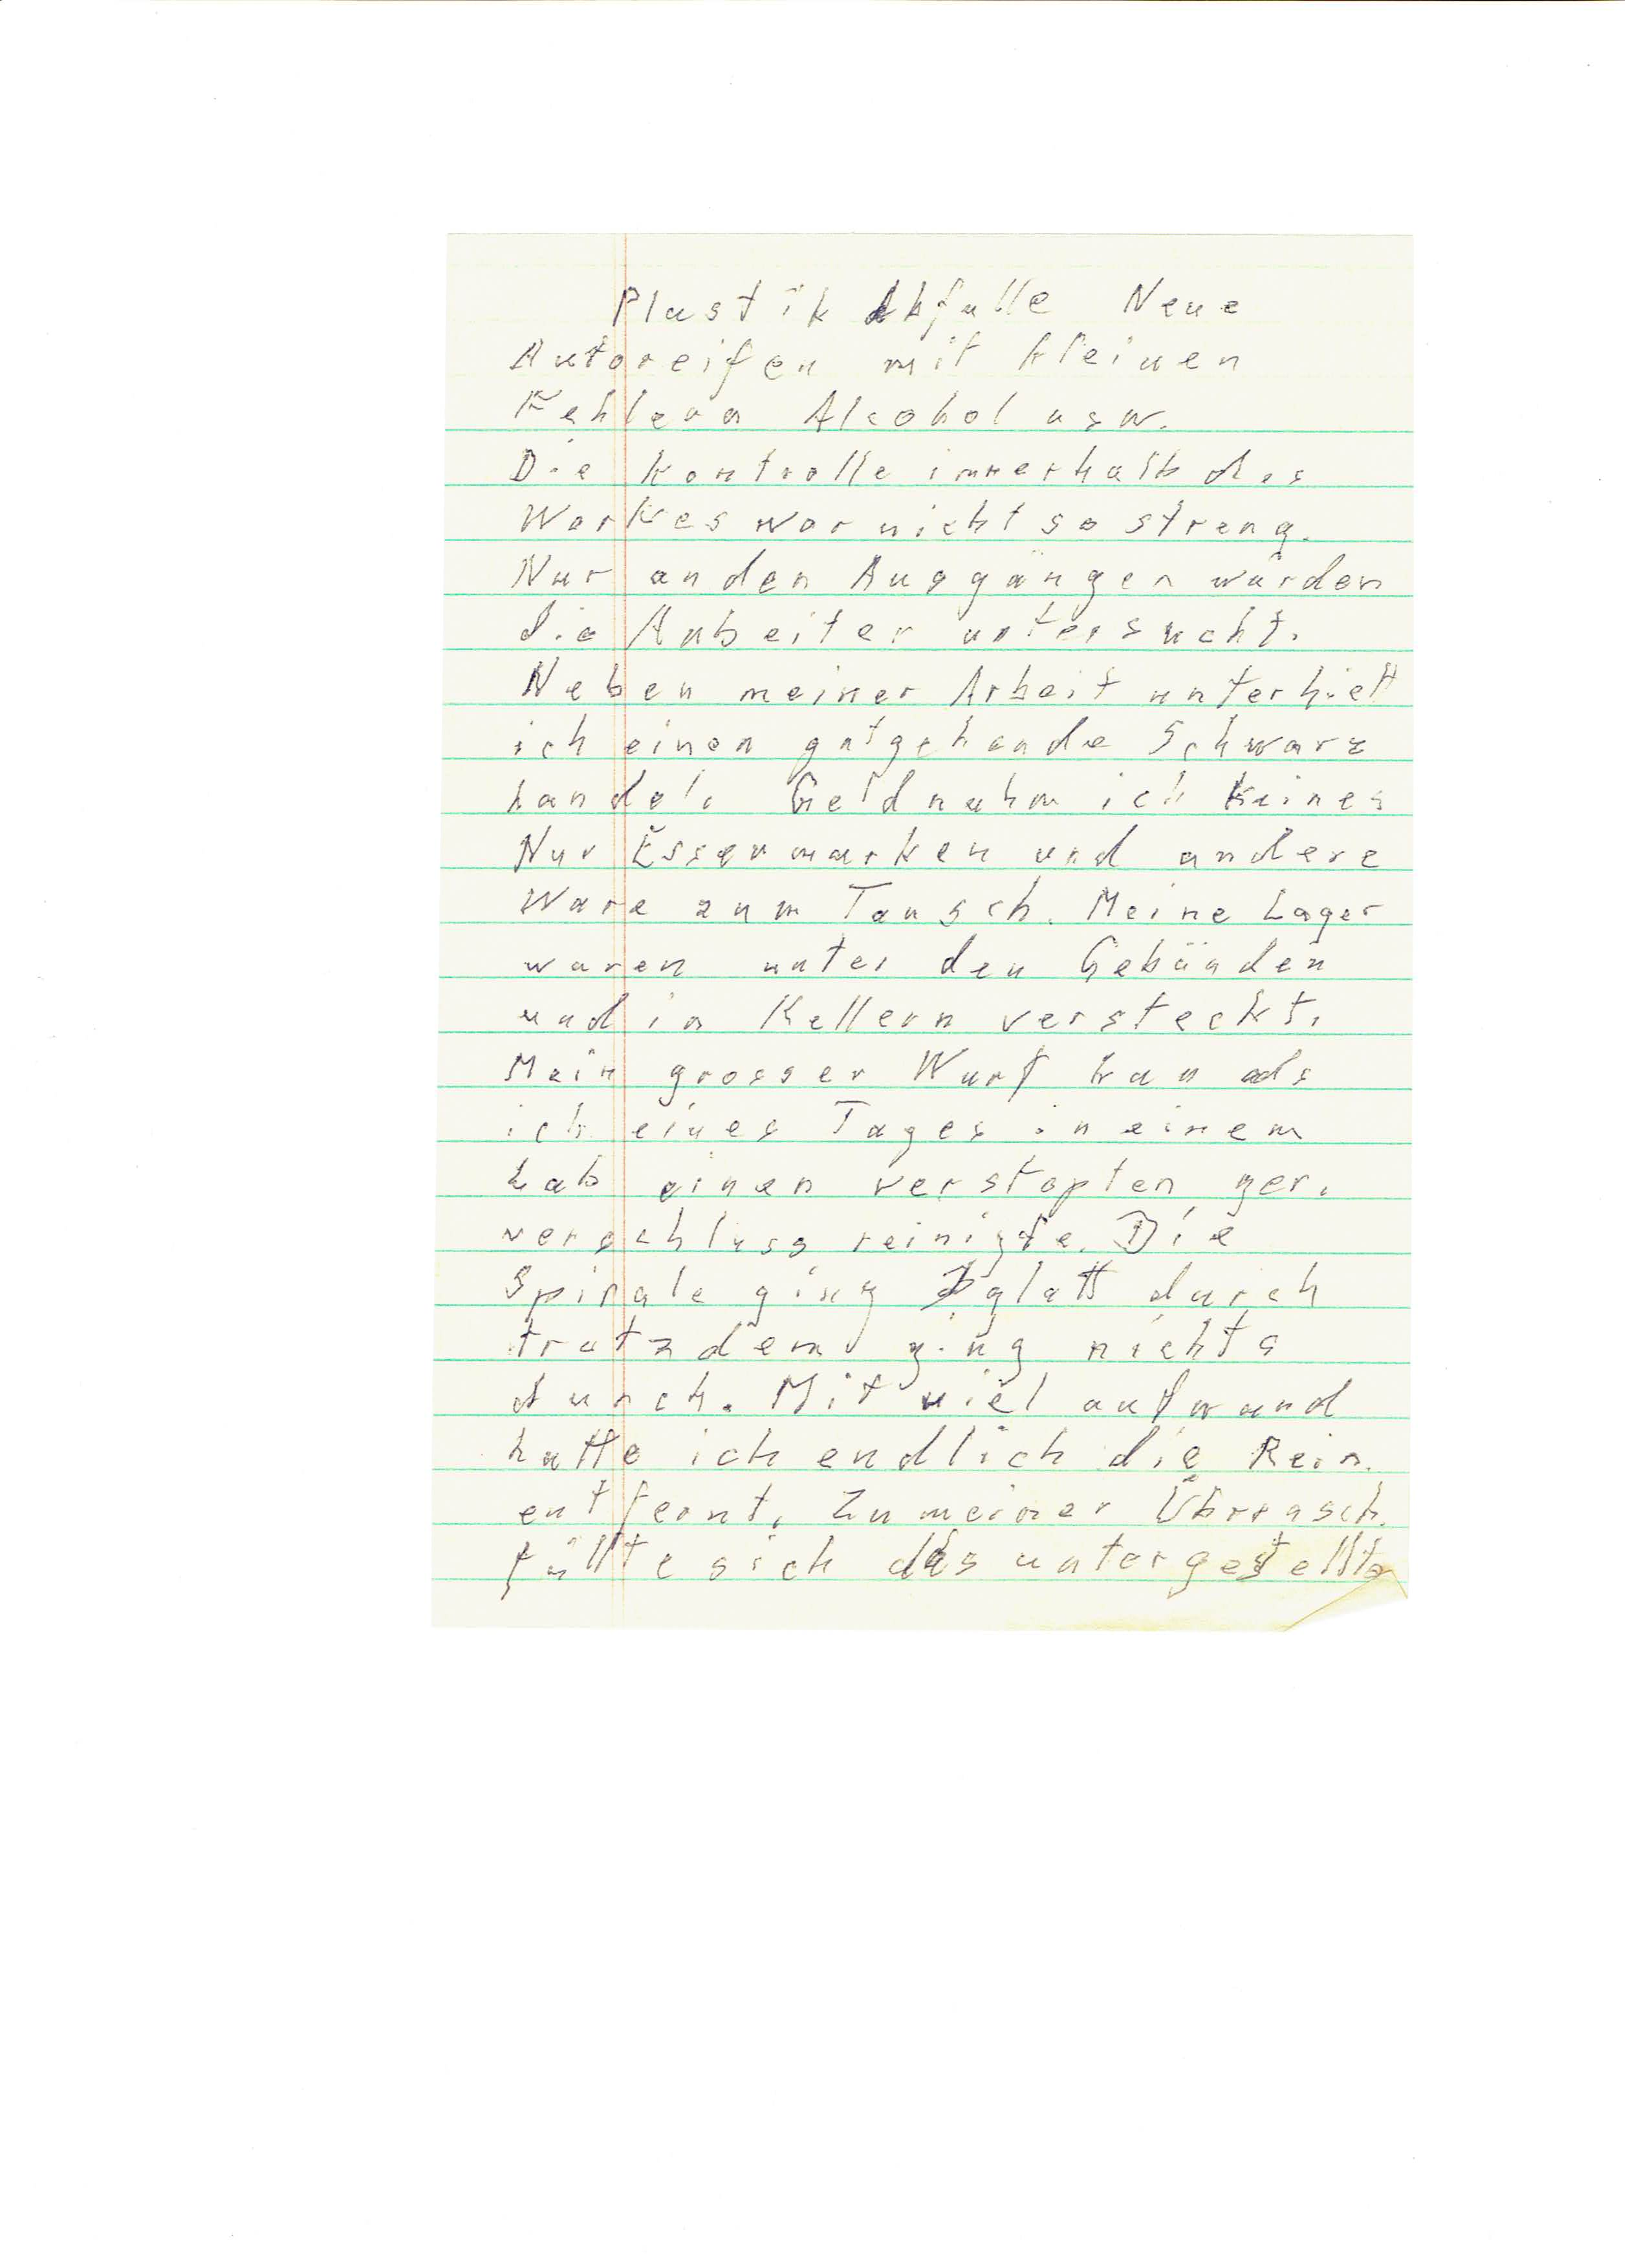 Plastik Abfalle Neue
Autoreifen mit kleinen
Fehlern Alcohol usw.
Die Kontrolle innerhalb des
Werkes war nicht so streng.
Nur an den Ausgängen wurden
die Arbeiter untersucht.
Neben meiner Arbeit unterhielt
ich einen gutgehende Schwarz
handel. Geld nahm ich keines
Nur Essenmarken und andere
Ware zum Tausch. Meine Lager
waren unter den Gebäuden
und in Kellern versteckt.
Mein grosser Wurf kam als
ich eines Tages in einem
Lab einen verstopten ger.
verschluss reinigte. Die
Spirale ging glatt durch
trotzdem ging nichts
durch. Mit viel aufwand
hatte ich endlich die Rein.
entfernt. Zu meiner Überrasch.
füllte sich das untergestellte